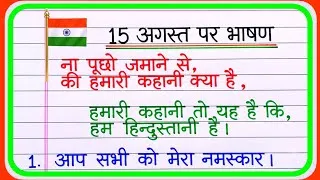 15 अगस्त पर भाषण
ना पूछो जमाने से,
की हमारी कहानी क्या है,
हमारी कहानी तो यह है कि,
हम हिन्दुस्तानी हैं।
1. आप सभी को मेरा नमस्कार।